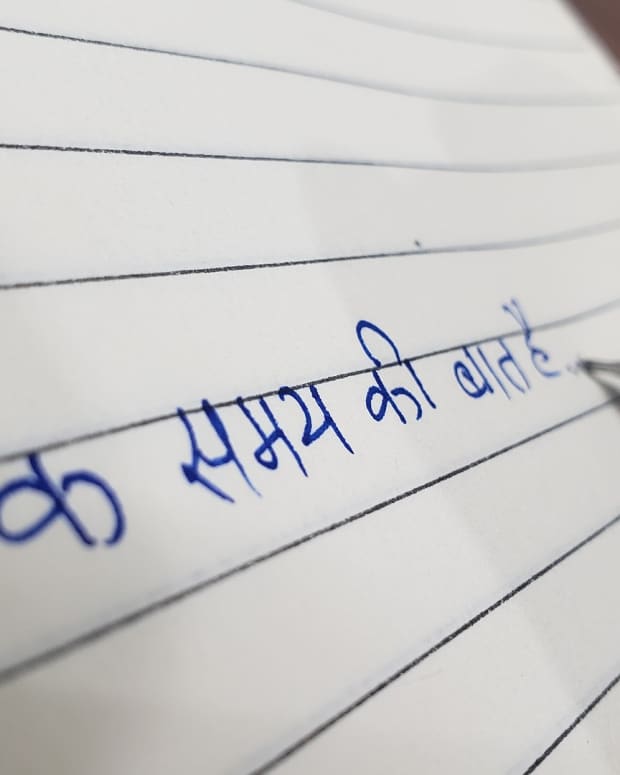 क समय की बात है..